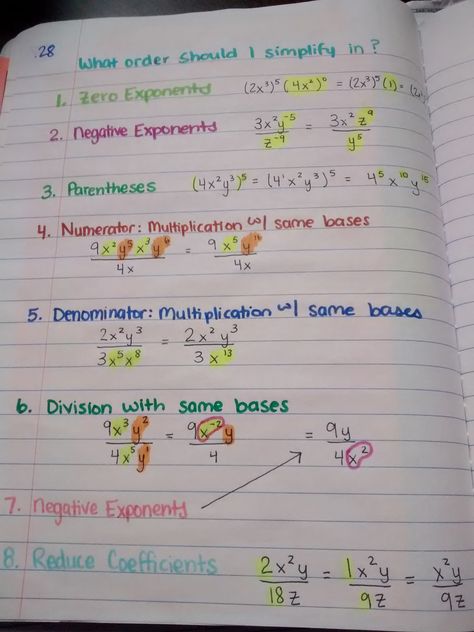 28
What order should I simplify in?
1. Zero Exponents (2x³)⁵(4x²)⁰ = (2x³)⁵(1) = (2x
2. Negative Exponents 3x²y⁻⁵/z⁻⁹ = 3x²z⁹/y⁵
3. Parentheses (4x²y³)⁵ = (4¹x²y³)⁵ = 4⁵x¹⁰y¹⁵
4. Numerator: Multiplication w/ same bases
9x²y⁵x³y⁶/4x = 9x⁵y¹¹/4x
5. Denominator: Multiplication w/ same bases
2x²y³/3x⁵x⁸ = 2x²y³/3x¹³
6. Division with same bases
9x³y²/4x⁵y¹ = 9x⁻²y/4 = 9y/4x²
7. Negative Exponents
8. Reduce Coefficients 2x²y/18z = 1x²y/9z = x²y/9z